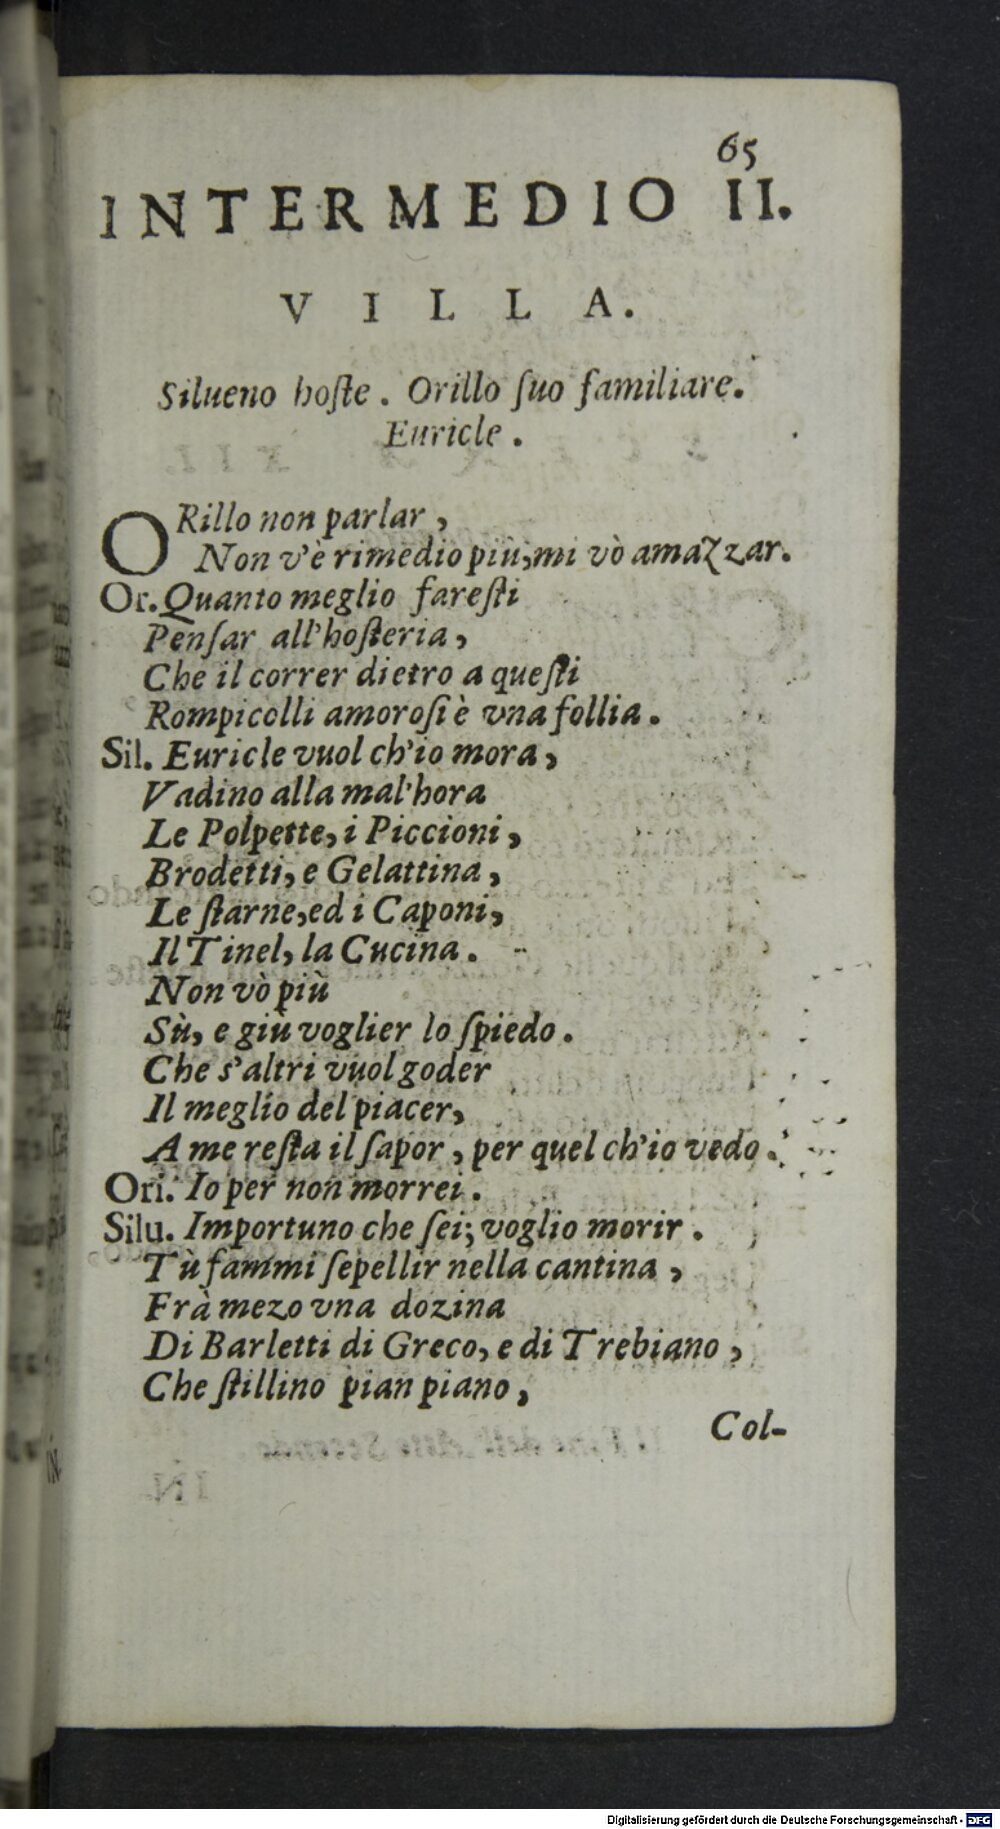 65
INTERMEDIO II.
VILLA.
Silueno hoſte. Orillo ſuo familiare.
Euricle.
ORillo non parlar,
Non v'è rimedio più, mi vò amazzar.
Or. Quanto meglio fareſti
Penſar all'hoſteria,
Che il correr dietro a queſti
Rompicolli amoroſi è vna follia.
Sil. Euricle vuol ch'io mora,
Vadino alla mal'hora
Le Polpette, i Piccioni,
Brodetti, e Gelattina,
Le ſtarne, ed i Caponi,
Il Tinel, la Cucina.
Non vò più
Sù, e giù voglier lo ſpiedo.
Che s'altri vuol goder
Il meglio del piacer,
A me reſta il ſapor, per quel ch'io vedo.
Ori. Io per non morrei.
Silu. Importuno che ſei; voglio morir.
Tù fammi ſepellir nella cantina,
Frà mezo vna dozina
Di Barletti di Greco, e di Trebiano,
Che ſtillino pian piano,
Col-
Digitalisierung gefördert durch die Deutsche Forschungsgemeinschaft - DFG